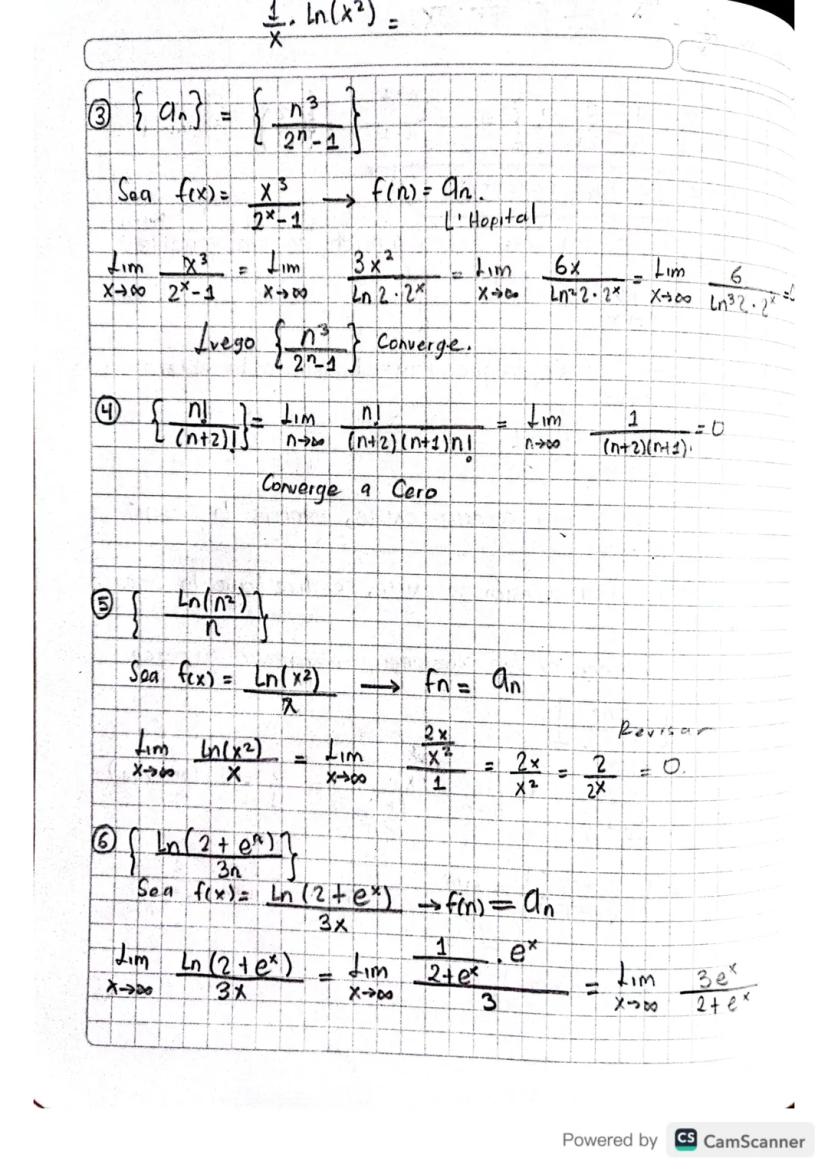 1/x . Ln(x²) =
③ { an } = { n³ / (2ⁿ - 1) }
Sea f(x) = x³ / (2ˣ - 1) → f(n) = an.
L'Hopital
Lim x→∞ x³ / (2ˣ - 1) = Lim x→∞ 3x² / (Ln 2 · 2ˣ) = Lim x→∞ 6x / (Ln²2 · 2ˣ) = Lim x→∞ 6 / (Ln³2 · 2ˣ) =
Luego { n³ / (2ⁿ - 1) } Converge.
④ { n! / (n+2)! } = Lim n→∞ n! / ((n+2)(n+1)n!) = Lim n→∞ 1 / ((n+2)(n+1)) = 0
Converge a Cero
⑤ { Ln(n²) / n }
Sea f(x) = Ln(x²) / x → fn = an
Revisar
Lim x→∞ Ln(x²) / x = Lim x→∞ (2x / x²) / 1 = 2x / x² = 2 / 2x = 0.
⑥ { Ln(2 + eⁿ) / 3n }
Sea f(x) = Ln(2 + eˣ) / 3x → f(n) = an
Lim x→∞ Ln(2 + eˣ) / 3x = Lim x→∞ (1 / (2 + eˣ) . eˣ) / 3 = Lim x→∞ 3eˣ / (2 + eˣ)
Powered by CS CamScanner